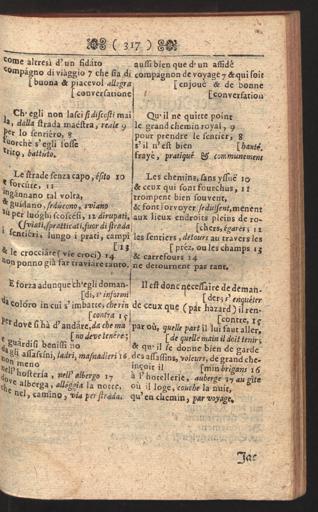 ( 317 )
come altresì d'un fidáto
compágno di viaggio 7 che sia di
[buona & piacevol allegra
[conversatione
Ch'egli non lasci si discosti mai
la, dalla strada maéstra, reale 9
per lo sentiéro, 8
fuorchè s'egli fosse
trito, battuto.
Le strade senza capo, ésito 10
e forcúte, 11
ingánnano tal volta,
& guidano, sedúcono, sviano
su per luóghi scoscési, 12 dirupati,
(sviati, spratticati, fuor di strada
i sentiéri, lungo i prati, campi
[13
& le crocciáre (vie croci) 14
non ponno già far traviáre tanto.
E forza adunque ch'egli doman-
[di, s'informi
da colóro in cui s'imbatte, cherin
[contra 15
per dove si hà d'andáre, da che ma
[no deve tenére;
e guárdisi benissi no
da gli assassíni, ladri, masnadiéri 16
non meno
nell'hosteria, nell'albergo 17
dove alberga, alloggia la notte,
che nel, camino, via per strada.
aussi bien que d'un affidé
compagnon de voyage 7 & qui soit
[enjoué & de bonne
[conversation
Qu'il ne quitte point
le grand chemin royal, 9
pour prendre le sentier, 8
s'il n'est bien [hanté,
frayé, pratiqué & communement
Les chemins, sans yssuë 10
& ceux qui sont fourchus, 11
trompent bien souvent,
& font forvoyer seduisent, menent
aux lieux endroits pleins de ro-
[chers, égarers 12
les sentiers, detours au travers les
[préz, ou les champs 13
& carrefours 14
ne detournent pas tant.
Il est donc necessaire de deman-
[der, s'enquéter
de ceux que (pár házard) il ren-
[contre, 15
par où, quelle part il luy faut aller,
[de quelle main il doit tenir,
& qu'il se donne bien de garde
des assassins, voleurs, de grand che-
[min brigans 16
à l'hotellerie, auberge 17 au gîte
où il loge, couche la nuit,
qu'en chemin, par voyage.
Jac